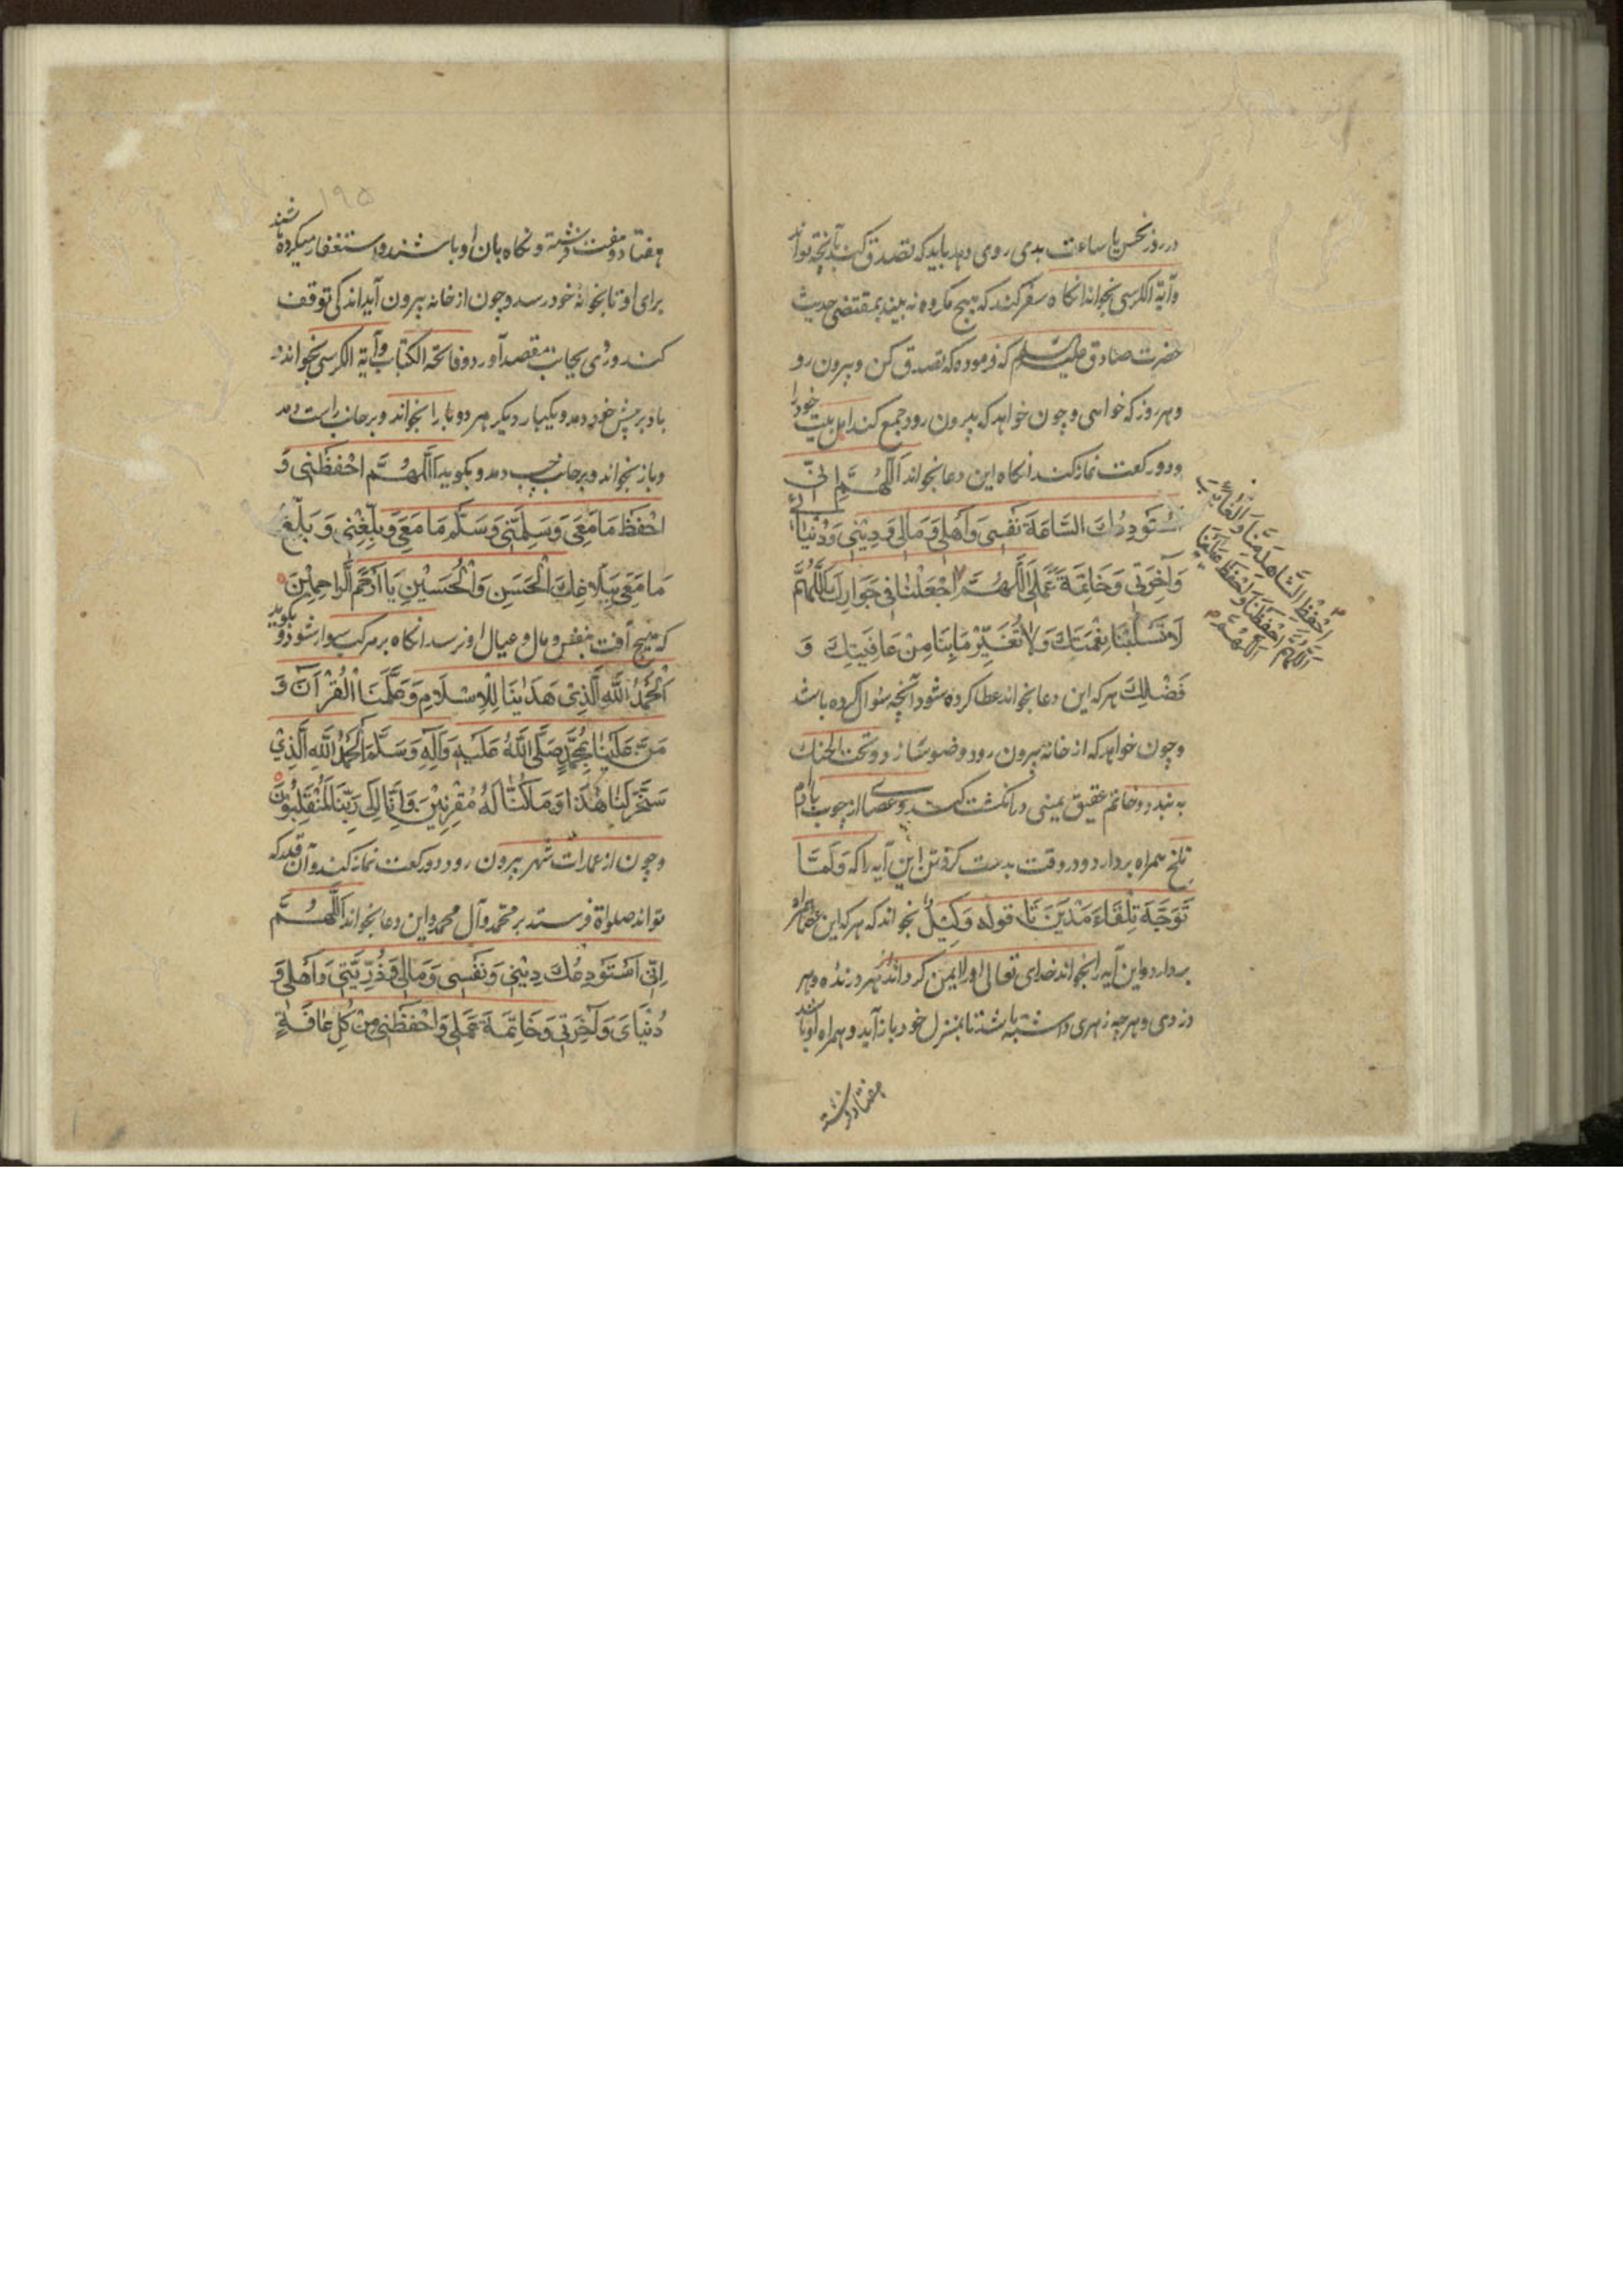 در روز نحس یا ساعت بدی روی دهد باید که تصدق کند بآنچه تواند
وآیة الکرسی بخواند انکاه سفر کند که هیچ مکروه نه بیند بمقتضی حدیث
حضرت صادق علیه السلام که فرموده که تصدق کن و بیرون رو
وهر روز که خواهی وچون خواهد که بیرون رود جمع کند اهل بیت خود را
ودو رکعت نماز کند انکاه این دعا بخواند اَللّٰهُمَّ اِنّی
اَسْتَوْدِعُكَ السَّاعَةَ نَفْسِی وَاَهْلِی وَمَالِی وَدِیْنِی وَدُنْیَاىَ
وَآخِرَتِی وَخَاتِمَةَ عَمَلِی اَللّٰهُمَّ اجْعَلْنَا فِی جَوَارِكَ اَللّٰهُمَّ
لَا تَسْلُبْنَا نِعْمَتَكَ وَلَا تُغَیِّرْ مَا بِنَا مِنْ عَافِیَتِكَ وَ
فَضْلِكَ هر که این دعا بخواند عطا کرده شود آنچه سئوال کرده باشد
وچون خواهد که از خانه بیرون رود وضو سازد وتحت الحنك
به بندد وخاتم عقیق یمنی در انکشت کند وعصا از چوب بادام
تلخ همراه بردارد ودر وقت بدست کرفتن این آیه را که وَلَمَّا
تَوَجَّهَ تِلْقَاءَ مَدْیَنَ تا قوله وَکِیْلٌ بخواند که هر که این عصا همراه
بردارد واین آیه را بخواند خدای تعالی او را ایمن کرداند از هر درنده وهر
دزدی وهر چه زهری داشته باشد تا بمنزل خود باز آید وهمراه او باشد
هفتاد فرشته
اِحْفَظِ الشَّاهِدَ مِنَّا وَالْغَائِبَ
اَللّٰهُمَّ احْفَظْنَا وَاحْفَظْ عَلَیْنَا
اَللّٰهُمَّ
۱۹۵
هفتاد وهفت فرشته ونکاه بان او باشند واستغفار میکرده باشند
برای او تا بخوانهٔ خود رسد وچون از خانه بیرون آید اندکی توقف
کند وروی بجانب مقصد آورد وفاتحة الکتاب وآیة الکرسی بخواند و
باد بر پیش خود دمد ویکبار دیکر هر دو را بخواند وبر جانب راست دمد
وباز بخواند وبر جانب چپ دمد وبکوید اَللّٰهُمَّ احْفَظْنِی وَ
احْفَظْ مَا مَعِی وَسَلِّمْنِی وَسَلِّمْ مَا مَعِی وَبَلِّغْنِی وَبَلِّغْ
مَا مَعِی بِبَلَاغِكَ الْحَسَنِ وَالْحُسَیْنِ یَا اَرْحَمَ الرَّاحِمِیْنَ
که هیچ آفت بنفس ومال وعیال او نرسد انکاه بر مرکب سوار شود وبکوید
اَلْحَمْدُ لِلّٰهِ الَّذِیْ هَدَانَا لِلْاِسْلَامِ وَعَلَّمَنَا الْقُرْآنَ وَ
مَنَّ عَلَیْنَا بِمُحَمَّدٍ صَلَّی اللّٰهُ عَلَیْهِ وَآلِهِ وَسَلَّمَ اَلْحَمْدُ لِلّٰهِ الَّذِیْ
سَخَّرَ لَنَا هٰذَا وَمَا کُنَّا لَهُ مُقْرِنِیْنَ وَاِنَّا اِلَی رَبِّنَا لَمُنْقَلِبُوْنَ
وچون از عمارات شهر بیرون رود دو رکعت نماز کند وآن قدر که
تواند صلواة فرستد بر محمد وآل محمد واین دعا بخواند اَللّٰهُمَّ
اِنِّی اَسْتَوْدِعُكَ دِیْنِی وَنَفْسِی وَمَالِی وَذُرِّیَّتِی وَاَهْلِی وَ
دُنْیَاىَ وَآخِرَتِی وَخَاتِمَةَ عَمَلِی وَاحْفَظْنِی مِنْ کُلِّ